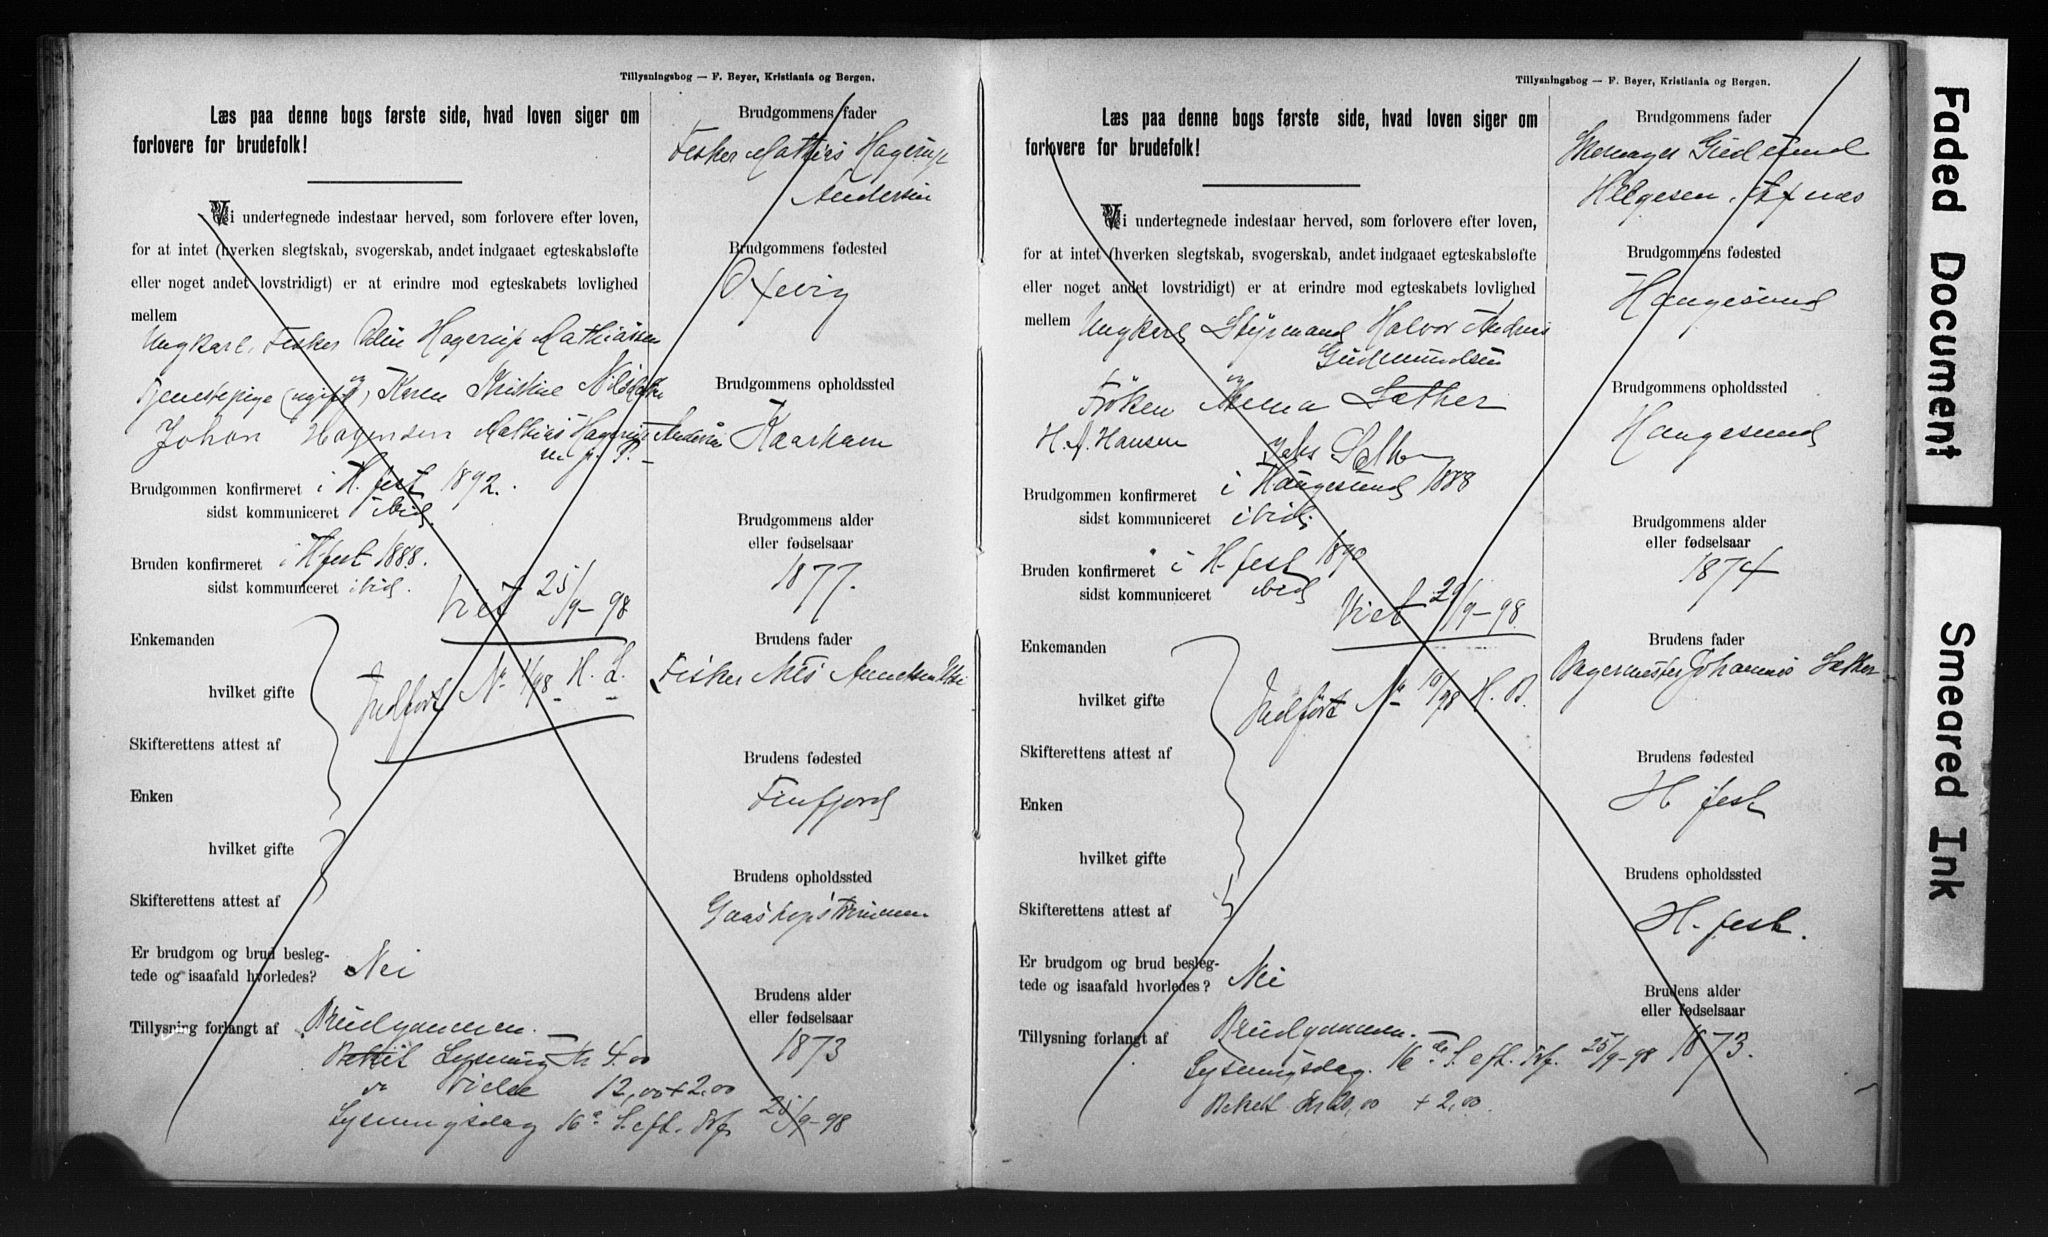 Tillysningsbog — F. Beyer, Kristiania og Bergen.
Læs paa denne bogs første side, hvad loven siger om
forlovere for brudefolk!
Vi undertegnede indestaar herved, som forlovere efter loven,
for at intet (hverken slegtskab, svogerskab, andet indgaaet egteskabsløfte
eller noget andet lovstridigt) er at erindre mod egteskabets lovlighed
mellem
Ungkarl, Fisker Hagerup Mathiassen
og
Tjenestepige (ugift) Karen Kristine
Johan Hagensen Mathias Hagerup Andersen
m. p. P.
Brudgommen konfirmeret i H.fest 1892.
sidst kommuniceret ibid.
Bruden konfirmeret i H.fest 1888.
sidst kommuniceret ibid.
Viet 25/9-98
Enkemanden
hvilket gifte
Indført No 1/98 H. L.
Skifterettens attest af
Enken
hvilket gifte
Skifterettens attest af
Er brudgom og brud beslegtede og isaafald hvorledes? Nei
Tillysning forlangt af Brudgommen.
Betalt Lysning Kr 4.00
" Vielse 12,00 + 2.00
Lysningsdag 16e S. eft. Trf. 25/9-98
Brudgommens fader
Fisker Mathias Hagerup
Andersen
Brudgommens fødested
Oxvig
Brudgommens opholdssted
Kaarhavn
Brudgommens alder
eller fødselsaar
1877.
Brudens fader
Fisker Nils
Brudens fødested
Finfjord
Brudens opholdssted
Brudens alder
eller fødselsaar
1873
Tillysningsbog — F. Beyer, Kristiania og Bergen.
Læs paa denne bogs første side, hvad loven siger om
forlovere for brudefolk!
Vi undertegnede indestaar herved, som forlovere efter loven,
for at intet (hverken slegtskab, svogerskab, andet indgaaet egteskabsløfte
eller noget andet lovstridigt) er at erindre mod egteskabets lovlighed
mellem Ungkarl Styrmand Halvor Andreas
Gudmundsen
og
Frøken Sæther
H. A. Hansen Sæther
Brudgommen konfirmeret i Haugesund 1888
sidst kommuniceret ibid.
Bruden konfirmeret i H.fest 1890
sidst kommuniceret ibid
Viet 29/9-98
Enkemanden
hvilket gifte
Indført No 10/98 H. B.
Skifterettens attest af
Enken
hvilket gifte
Skifterettens attest af
Er brudgom og brud beslegtede og isaafald hvorledes? Nei
Tillysning forlangt af Brudgommen.
Lysningsdag. 16de S. eft. Trf. 25/9-98
Betalt Kr 20,00 + 2,00.
Brudgommens fader
Skomager Gudmund
Helgesen
Brudgommens fødested
Haugesund
Brudgommens opholdssted
Haugesund
Brudgommens alder
eller fødselsaar
1874
Brudens fader
Bagermester Johannes Sæther
Brudens fødested
H.fest
Brudens opholdssted
H.fest.
Brudens alder
eller fødselsaar
1873.
Faded Document
Smeared Ink